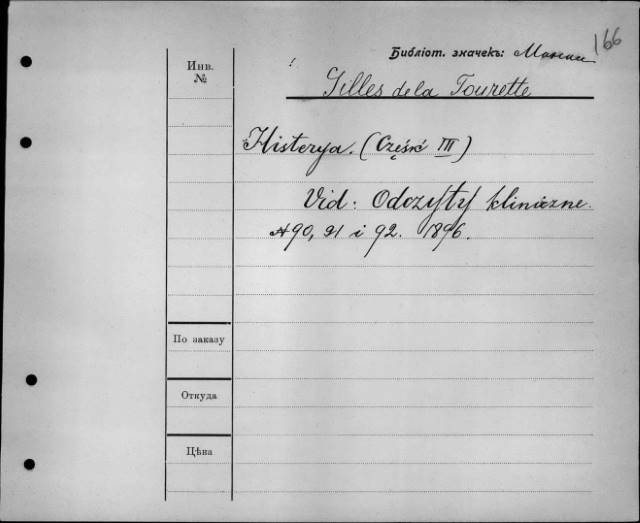 166
Библіот. значекъ:
Инв.
№
Gilles de la Tourette
Histerya. (Część III)
Vid: Odczyty kliniczne.
№90, 91 i 92. 1896.
По заказу
Откуда
Цѣна